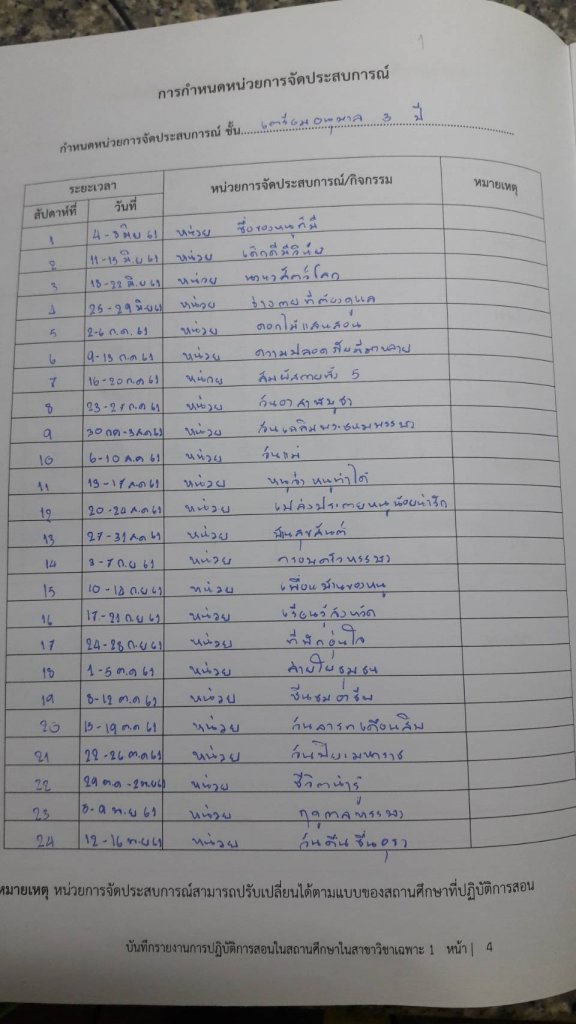 1
การกำหนดหน่วยการจัดประสบการณ์
กำหนดหน่วยการจัดประสบการณ์ ชั้น เตรียมอนุบาล 3 ปี
ระยะเวลา หน่วยการจัดประสบการณ์/กิจกรรม หมายเหตุ
สัปดาห์ที่ วันที่
1 4-8 มิย 61 หน่วย ชื่อของหนูก็มี
2 11-15 มิย 61 หน่วย เด็กดีมีวินัย
3 18-22 มิย 61 หน่วย นานาสัตว์โลก
4 25-29 มิย 61 หน่วย ร่างกายที่ต้องดูแล
5 2-6 ก.ค. 61 หน่วย ดอกไม้แสนสวย
6 9-13 ก.ค 61 หน่วย ความปลอดภัย
7 16-20 ก.ค 61 หน่วย สัมผัสกายทั้ง 5
8 23-27 ก.ค 61 หน่วย วันอาสาฬบูชา
9 30 กค-3 สค 61 หน่วย วันเฉลิมพระชนมพรรษา
10 6-10 ส.ค 61 หน่วย วันแม่
11 13-17 ส.ค 61 หน่วย หนูจ๋าหนูทำได้
12 20-24 ส.ค 61 หน่วย หนูน้อยน่ารัก
13 27-31 ส.ค 61 หน่วย บ้านสุขสันต์
14 3-7 ก.ย 61 หน่วย ครอบครัวหรรษา
15 10-14 ก.ย 61 หน่วย เพื่อนบ้านของหนู
16 17-21 ก.ย 61 หน่วย เรียนรู้จังหวัด
17 24-28 ก.ย 61 หน่วย ที่พักอุ่นใจ
18 1-5 ต.ค 61 หน่วย สายใยชุมชน
19 8-12 ต.ค 61 หน่วย ชื่นชมอาชีพ
20 15-19 ต.ค 61 หน่วย วันสารทเดือนสิบ
21 22-26 ต.ค 61 หน่วย วันปิยะมหาราช
22 29 ต.ค-2 พ.ย 61 หน่วย ชีวิตน่ารู้
23 5-9 พ.ย 61 หน่วย ฤดูกาลหรรษา
24 12-16 พ.ย 61 หน่วย
หมายเหตุ หน่วยการจัดประสบการณ์สามารถปรับเปลี่ยนได้ตามแบบของสถานศึกษาที่ปฏิบัติการสอน
บันทึกรายงานการปฏิบัติการสอนในสถานศึกษาในสาขาวิชาเฉพาะ 1 หน้า | 4